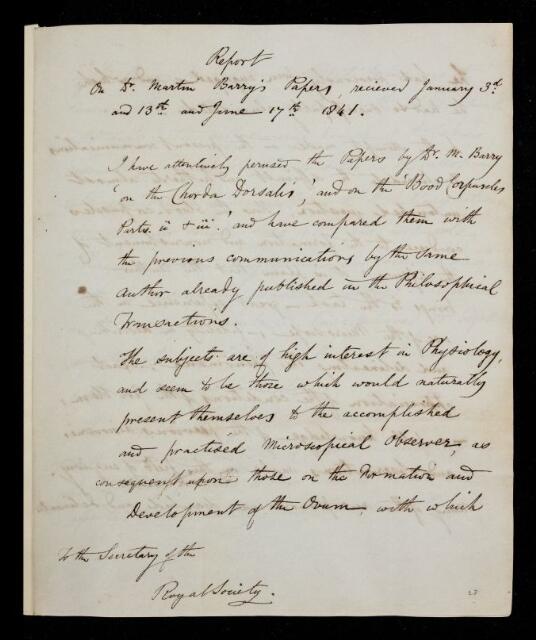 Report
On Dr. Martin Barry's Papers, reciever January 3.d
and 13th. and June 17th. 1841.
I have attentively perused the Papers by Dr. M. Barry
'on the Chorda Dorsalis', and on the 'Bood Corpuscles
Parts. ii & iii.' and have compared them with
the previous communications by the same
author already published in the Philosophical
Transactions.
The subjects are of high interest in Physiology,
and seem to be those which would naturally
present themselves to the accomplished
and practised Microscopical Observer, as
consequent upon those on the Formation and
Development of the Ovum, with which
To the Secretary of the
Royal Society.